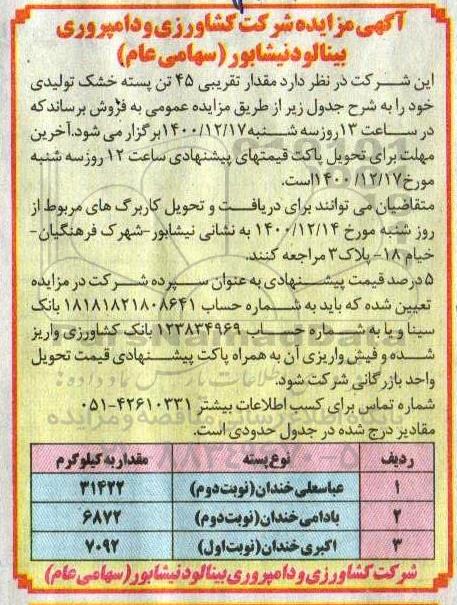 آگهی مزایده شرکت کشاورزی و دامپروری
بینالود نیشابور (سهامی عام)
این شرکت در نظر دارد مقدار تقریبی ۴۵ تن پسته خشک تولیدی
خود را به شرح جدول زیر از طریق مزایده عمومی به فروش برساند که
در ساعت ۱۳ روز سه شنبه ۱۴۰۰/۱۲/۱۷ برگزار می شود. آخرین
مهلت برای تحویل پاکت قیمتهای پیشنهادی ساعت ۱۲ روز سه شنبه
مورخ ۱۴۰۰/۱۲/۱۷ است.
متقاضیان می توانند برای دریافت و تحویل کاربرگ های مربوط از
روز شنبه مورخ ۱۴۰۰/۱۲/۱۴ به نشانی نیشابور-شهرک فرهنگیان-
خیام ۱۸- پلاک ۳ مراجعه کنند.
۵ درصد قیمت پیشنهادی به عنوان سپرده شرکت در مزایده
تعیین شده که باید به شماره حساب ۱۸۱۸۱۸۲۱۸۰۸۶۴۱ بانک
سینا و یا به شماره حساب ۱۲۳۸۳۴۹۶۹ بانک کشاورزی واریز
شده و فیش واریزی آن به همراه پاکت پیشنهادی قیمت تحویل
واحد بازرگانی شرکت شود.
شماره تماس برای کسب اطلاعات بیشتر ۴۲۶۱۰۳۳۱-۰۵۱
مقادیر درج شده در جدول حدودی است.
ردیف نوع پسته مقدار به کیلوگرم
۱ عباسعلی خندان (نوبت دوم) ۳۱۴۲۲
۲ بادامی خندان (نوبت دوم) ۶۸۷۲
۳ اکبری خندان (نوبت اول) ۷۰۹۲
شرکت کشاورزی و دامپروری بینالود نیشابور (سهامی عام)